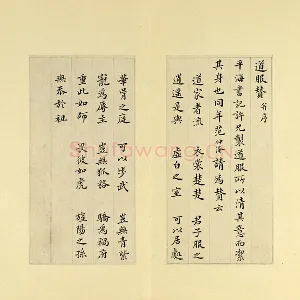 道服賛 并序
平海書記許兄製道服所以清其意而潔
其身也同年范仲淹請為賛云
道家者流 衣裳楚楚 君子服之
逍遥是與 虚白之室 可以居處
華胥之庭 可以步武 豈無青紫
寵為辱主 豈無狐貉 驕為禍府
重此如師 畏彼如虎 旌陽之孫
無忝於祖